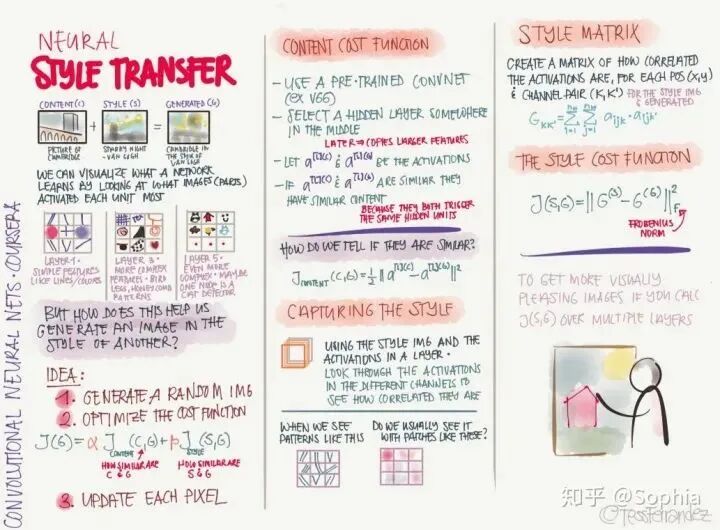 NEURAL
STYLE TRANSFER
CONTENT (C)
STYLE (S)
GENERATED (G)
+
=
PICTURE OF
CAMBRIDGE
STARRY NIGHT
-VAN GOGH
CAMBRIDGE IN
THE STYLE OF
VAN GOGH
WE CAN VISUALIZE WHAT A NETWORK
LEARNS BY LOOKING AT WHAT IMAGES (PARTS)
ACTIVATED EACH UNIT MOST
LAYER 1 -
SIMPLE FEATURES
LIKE LINES/COLORS
LAYER 3 -
MORE COMPLEX
FEATURES - BIRD
LEGS, HONEYCOMB
PATTERNS
LAYER 5 -
EVEN MORE
COMPLEX - MAYBE
ONE NODE IS A
CAT DETECTOR
BUT HOW DOES THIS HELP US
GENERATE AN IMAGE IN THE
STYLE OF ANOTHER?
IDEA:
1. GENERATE A RANDOM IMG
2. OPTIMIZE THE COST FUNCTION
J(G) = α J CONTENT (C,G) + β J STYLE (S,G)
HOW SIMILAR ARE
C & G
HOW SIMILAR ARE
S & G
3. UPDATE EACH PIXEL
CONVOLUTIONAL NEURAL NETS · COURSERA
CONTENT COST FUNCTION
- USE A PRE-TRAINED CONVNET
(EX VGG)
- SELECT A HIDDEN LAYER SOMEWHERE
IN THE MIDDLE
LATER ⇒ COPIES LARGER FEATURES
- LET a[l](C) & a[l](G) BE THE ACTIVATIONS
- IF a[l](C) & a[l](G) ARE SIMILAR THEY
HAVE SIMILAR CONTENT
BECAUSE THEY BOTH TRIGGER
THE SAME HIDDEN UNITS
HOW DO WE TELL IF THEY ARE SIMILAR?
J CONTENT (C,G) = ½ || a[l](C) - a[l](G) ||²
CAPTURING THE STYLE
USING THE STYLE IMG AND THE
ACTIVATIONS IN A LAYER.
LOOK THROUGH THE ACTIVATIONS
IN THE DIFFERENT CHANNELS TO
SEE HOW CORRELATED THEY ARE
WHEN WE SEE
PATTERNS LIKE THIS
DO WE USUALLY SEE IT
WITH PATCHES LIKE THESE?
STYLE MATRIX
CREATE A MATRIX OF HOW CORRELATED
THE ACTIVATIONS ARE, FOR EACH POS (X,Y)
& CHANNEL PAIR (K,K') FOR THE STYLE IMG
& GENERATED
THE STYLE COST FUNCTION
J(S,G) = || G(S) - G(G) ||² F
FROBENIUS
NORM
TO GET MORE VISUALLY
PLEASING IMAGES IF YOU CALC
J(S,G) OVER MULTIPLE LAYERS
知乎 @Sophia
@TessFerrandez